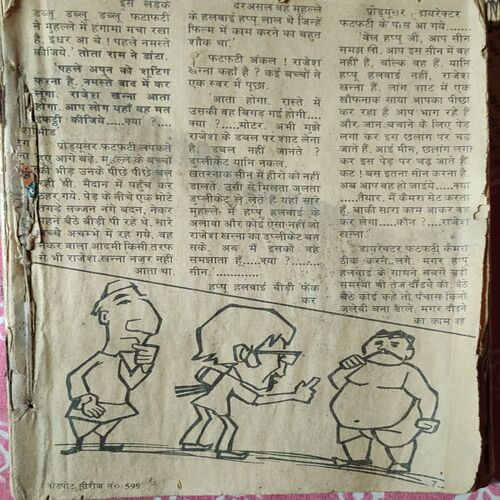 इस लड़के
डब्लु डब्लू डब्लू फटाफटी
ने मुहल्ले में हंगामा मचा रखा
है. इधर आ बे ! पहले नमस्ते
कीजिये.' तोता राम ने डांटा.
'पहले अपुन को शूटिंग
करना है. नमस्ते बाद में कर
लूंगा. राजेश खन्ना आता
होगा. आप लोग यहाँ यह मत
इकट्ठी कीजिये.....क्या ?....
प्रोड्यूसर फटफटी लपकते
हुए आगे बढ़े. मुहल्ले के बच्चों
की भीड़ उनके पीछे पीछे चल
रही थी. मैदान में पहुँच कर
ठहर गये. पेड़ के नीचे एक मोटे
बदन, नेकर
पहने बैठे बीड़ी पी रहे थे. सारे
बच्चे अचम्भे में रह गये. वह
नेकर वाला आदमी किसी तरफ
से भी राजेश खन्ना नजर नहीं
आता था.
दरअसल वह मुहल्ले
के हलवाई हप्पू लाल थे जिन्हें
फिल्म में काम करने का बहुत
शौक था.'
' फटफटी अंकल ! राजेश
खन्ना कहाँ है ? कई बच्चों ने
एक स्वर में पूछा.
'आता होगा. रास्ते में
उसकी वह बिगड़ गई होगी....
क्या ?.....मोटर. अभी मुझे
राजेश के डबल पर शाट लेना
है. डबल नहीं जानते ?
डुप्लीकेट यानि नकल.
खतरनाक सीन में हीरो को नहीं
डालते. उसी से मिलता जुलता
डुप्लीकेट ले लेते हैं यहाँ सारे
मुहल्ले में हप्पू हलवाई के
अलावा और कोई ऐसा नहीं जो
राजेश खन्ना का डुप्लीकेट बन
सके. अब मैं इसको वह
समझाता हूँ....क्या ?.......
सीन.'............
हप्पू हलवाई बीड़ी फेंक
कर
प्रोड्यूसर, डायरेक्टर
फटफटी के पास आ गये.
'वेल हप्पू जी, आप सीन
समझ लो. आप इस सीन में वह
नहीं है, बल्कि वह हैं. यानि
हप्पू हलवाई नहीं, राजेश
खन्ना हैं. लांग शाट में एक
खौफनाक साया आपका पीछा
कर रहा है आप भाग रहे हैं
और जान बचाने के लिए पेड़
लगा कर इस छलांग पर चढ़
जाते हैं. आई मीन, छलांग लगा
कर इस पेड़ पर चढ़ जाते हैं.
कट ! बस इतना सीन करना है.
अब आप वह हो जाईये.....क्या
....तैयार. मैं कैमरा सेट करता
हूँ. बाकी सारा काम आकर वह
कर लेगा.....कौन ?....राजेश
खन्ना.'
डायरेक्टर फटफटी कैमरा
ठीक करने लगे. मगर हप्पू
हलवाई के सामने सबसे बड़ी
समस्या थी तेज दौड़ने की. बैठे
बैठे कोई कहे तो पंचास किलो
जलेबी बना डाले. मगर दौड़ने
का काम वह
लोटपोट सीरीज नं० 599
7